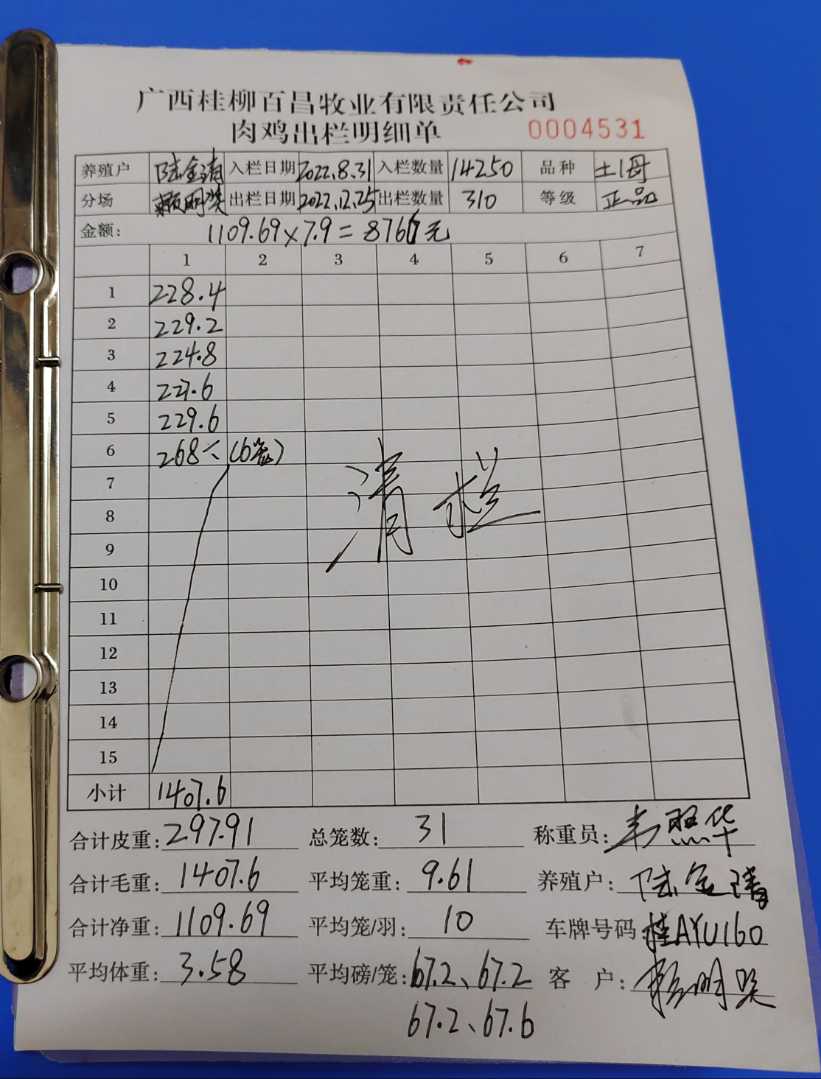 广西桂柳百昌牧业有限责任公司
肉鸡出栏明细单 0004531
养殖户 陆金清 入栏日期 2022.8.31 入栏数量 14250 品种 土1母
分场 赖明奖 出栏日期 2022.12.25 出栏数量 310 等级 正品
金额: 1109.69×7.9=8766元
1 2 3 4 5 6 7
1 228.4
2 229.2
3 224.8
4 227.6
5 229.6
6 268 (6笼)
7
8 清栏
9
10
11
12
13
14
15
小计 1407.6
合计皮重: 297.91 总笼数: 31 称重员: 韦照华
合计毛重: 1407.6 平均笼重: 9.61 养殖户: 陆金清
合计净重: 1109.69 平均笼/羽: 10 车牌号码 桂AYU160
平均体重: 3.58 平均磅/笼: 67.2、67.2 客户: 赖明奖
67.2、67.6